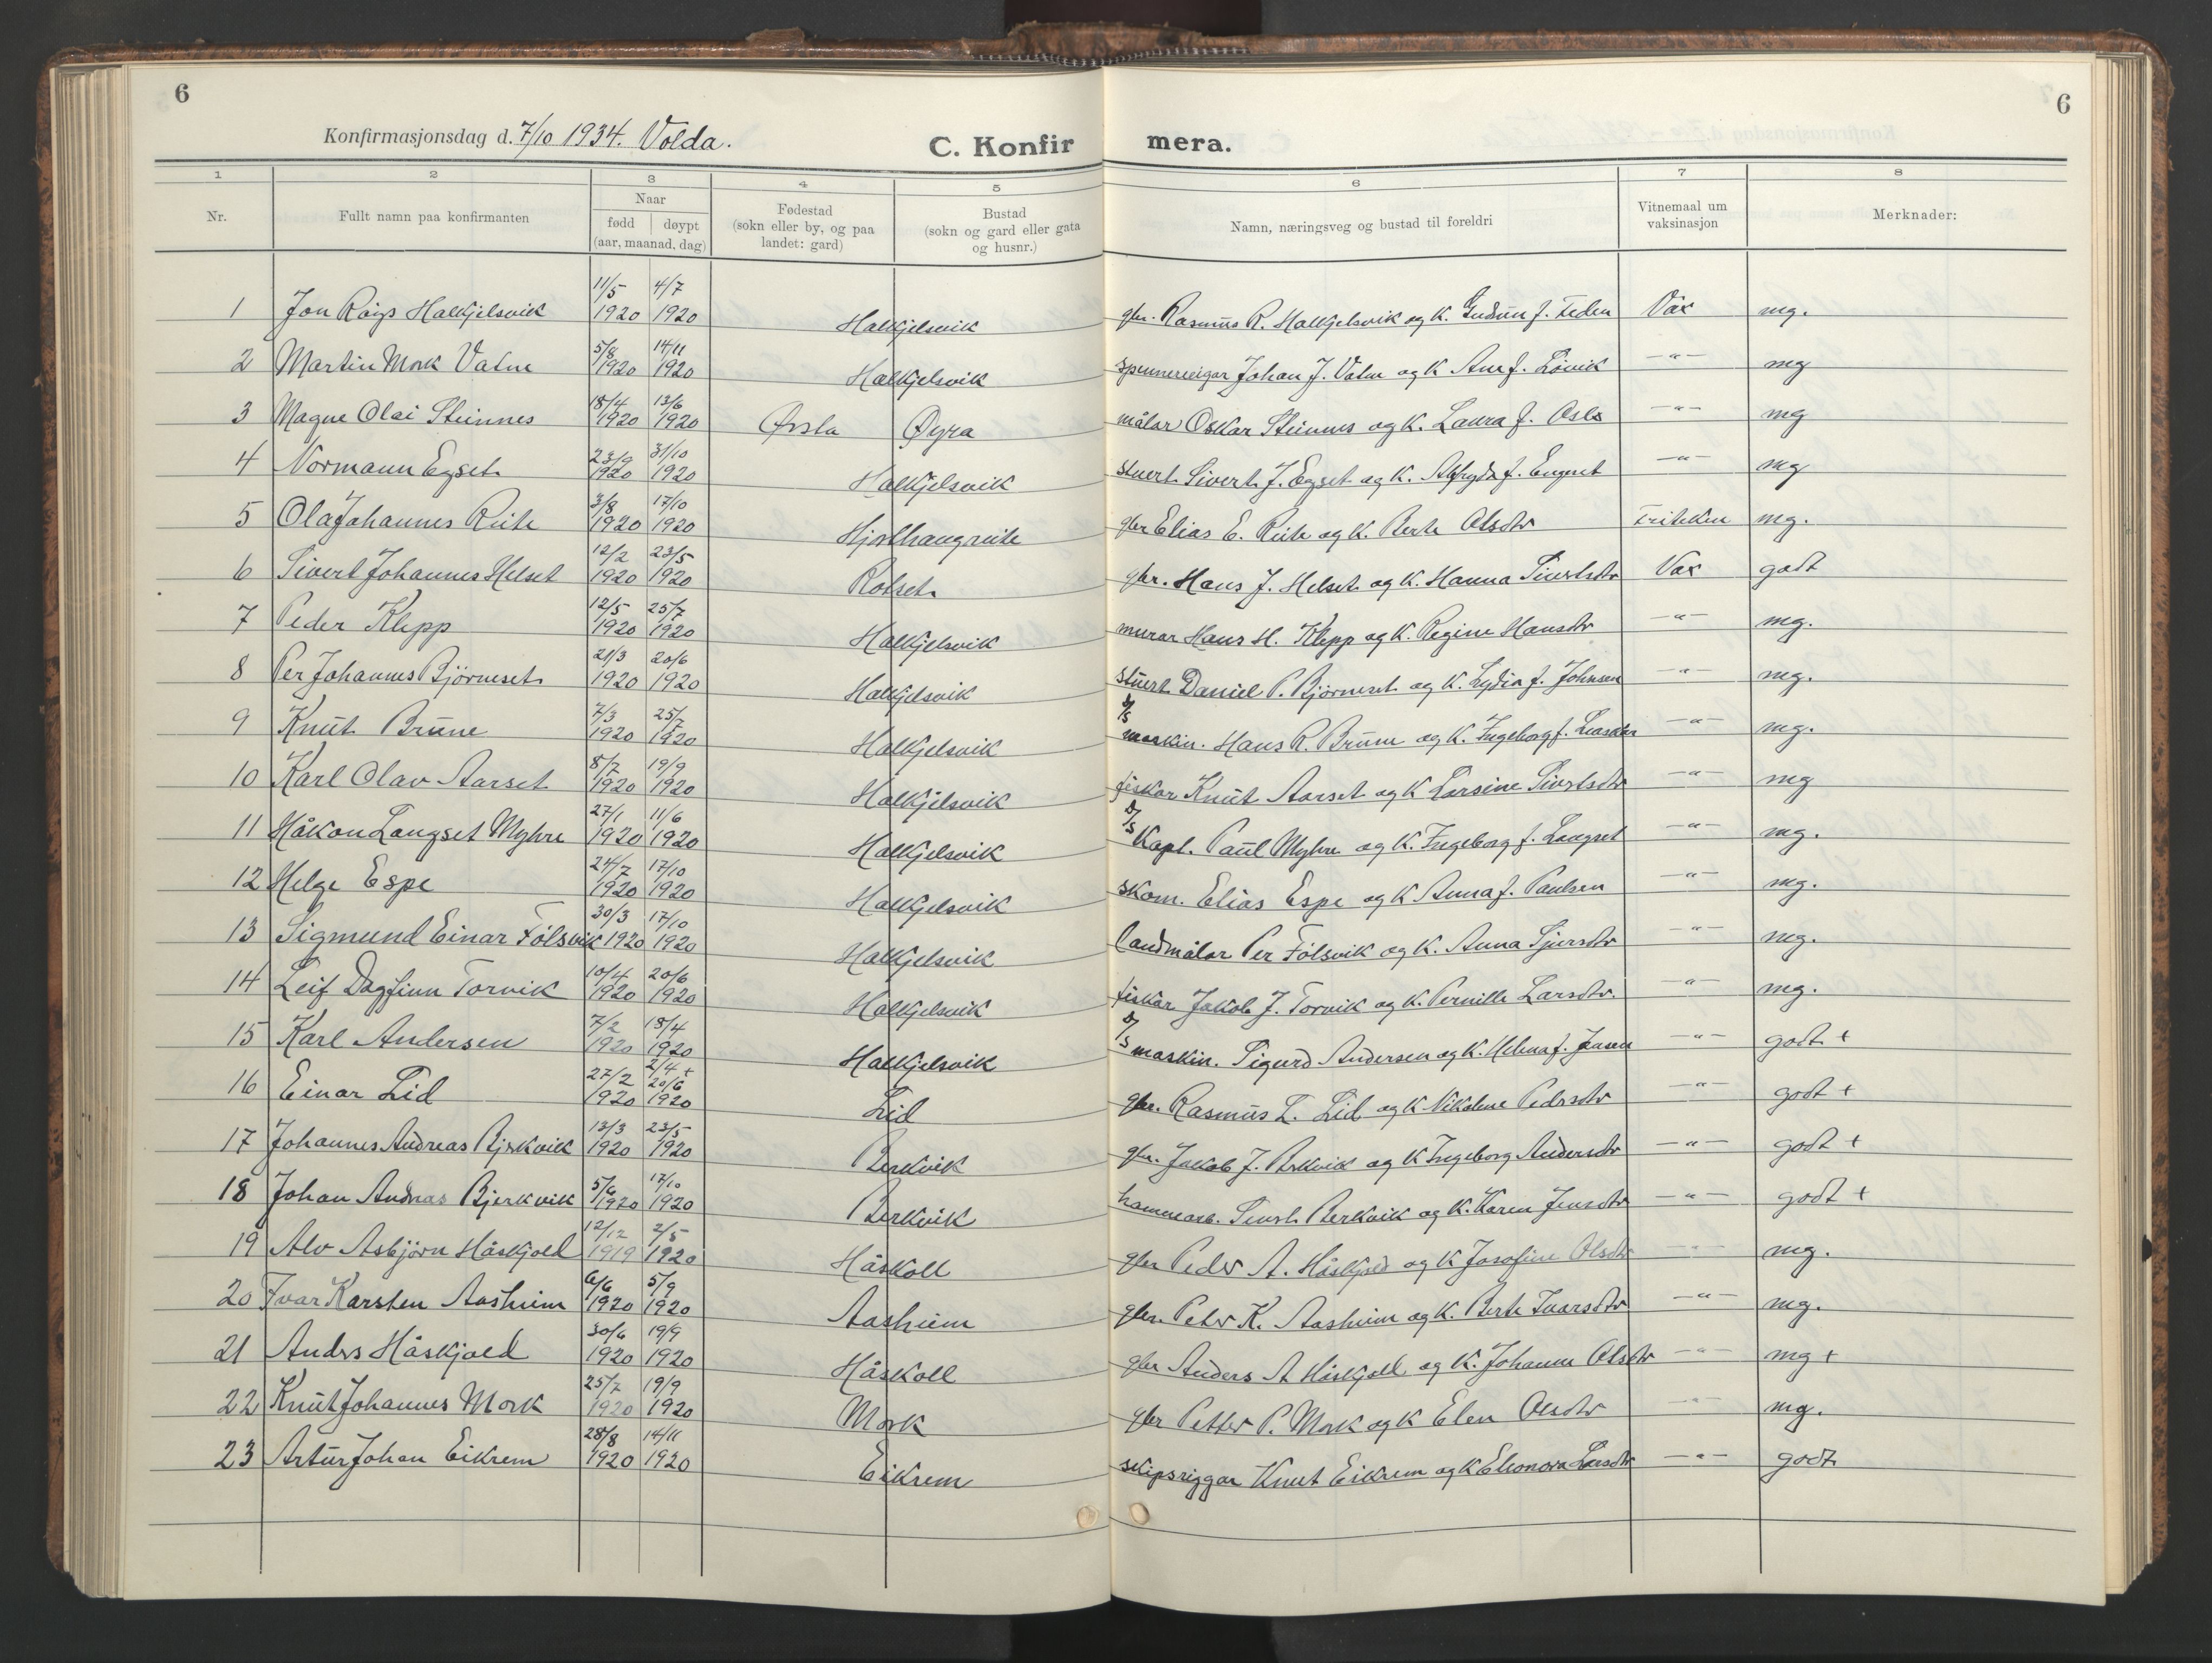 6
6
Konfirmasjonsdag d. 7/10 1934. Volda.
C. Konfir mera.
1 2 3 4 5 6 7 8
Nr.
Fullt namn paa konfirmanten
Naar
fødd døypt
(aar, maanad, dag)
Fødestad
(sokn eller by, og paa
landet: gard)
Bustad
(sokn og gard eller gata
og husnr.)
Namn, næringsveg og bustad til foreldri
Vitnemaal um
vaksinasjon
Merknader:
1 Jon Røys Halkjelsvik 11/5 1920 4/7 1920 Halkjelsvik gbr. Rasmus R. Halkjelsvik og K. Gudrun f. Feden Vax mg.
2 Martin Mork Vatne 5/8 1920 14/11 1920 Halkjelsvik spinnerieigar Johan J. Vatne og K Ane f. Løvik —"— mg
3 Magne Olai Steinnes 18/4 1920 13/6 1920 Ørsta Øyra målar Oskar Steinnes og K. Laura f. Oslo —"— mg
4 Normann Egset 23/9 1920 31/10 1920 Halkjelsvik stuert. Sivert J. Egset og K. f. Engeset —"— mg
5 Ola Johannes Riite 3/8 1920 17/10 1920 Hjorthaugriite gbr Elias E. Riite og K. Berte Olsdtr Friteken mg.
6 Sivert Johannes Helset 12/2 1920 23/5 1920 Rotset gbr. Hans J. Helset og K. Hanna Sivertsdtr Vax godt
7 Peder Klepp 12/5 1920 25/7 1920 Halkjelsvik murar Hans H. Klepp og K. Regine Hansdtr —"— mg.
8 Per Johannes Bjørneset 21/3 1920 20/6 1920 Halkjelsvik stuert Daniel P. Bjørneset og K. Lydia f. Johnsen —"— mg.
9 Knut Brune 7/3 1920 25/7 1920 Halkjelsvik D/S maskin. Hans R. Brune og K. Ingeborg f. Larsdtr —"— mg.
10 Karl Olav Aarset 8/7 1920 19/9 1920 Halkjelsvik fiskar Knut Aarset og K Larsine Sivertsdtr —"— mg
11 Håkon Langset Myhre 27/1 1920 11/6 1920 Halkjelsvik D/S Kapt. Paul Myhre og K. Ingeborg f. Langset —"— mg.
12 Helge Espe 24/7 1920 17/10 1920 Halkjelsvik skom. Elias Espe og K Anna f. Paulsen —"— mg.
13 Sigmund Einar Følsvik 30/3 1920 17/10 1920 Halkjelsvik landmålar Per Følsvik og K. Anna Sjursdtr —"— mg.
14 Leif Dagfinn Torvik 10/4 1920 20/6 1920 Halkjelsvik fiskar Jakob J. Torvik og K. Pernille Larsdtr. —"— mg.
15 Karl Andersen 7/2 1920 18/4 1920 Halkjelsvik D/S maskin. Sigurd Andersen og K. Helena f. Jensen —"— godt +
16 Einar Lid 27/2 1920 2/4 + 20/6 1920 Lid gbr. Rasmus L. Lid og K Nikoline Pedersdtr —"— godt +
17 Johannes Andreas Bjerkvik 13/3 1920 23/5 1920 Berkvik gbr. Jakob J. Berkvik og K Ingeborg Andersdtr —"— godt +
18 Johan Andreas Bjerkvik 5/6 1920 17/10 1920 Berkvik hamnearb. Sivert Berkvik og K. Karen Jensdtr —"— godt +
19 Alv Asbjørn Håskjold 12/12 1919 2/5 1920 Håskoll gbr Peder A. Håskjold og K Josofine Olsdtr —"— mg.
20 Ivar Karsten Aasheim 6/6 1920 5/9 1920 Aasheim gbr. Peter K. Aasheim og K. Berte Ivarsdtr —"— mg.
21 Anders Håskjold 30/6 1920 19/9 1920 Håskoll gbr Anders A Håskjoll og K. Johanne Olsdtr —"— mg +
22 Knut Johannes Mork 25/7 1920 19/9 1920 Mork gbr Petter P. Mork og K Elen Olsdtr —"— mg.
23 Artur Johan Eikrem 28/8 1920 14/11 1920 Eikrem skipsriggar Knut Eikrem og K Eleonora Larsdtr —"— godt